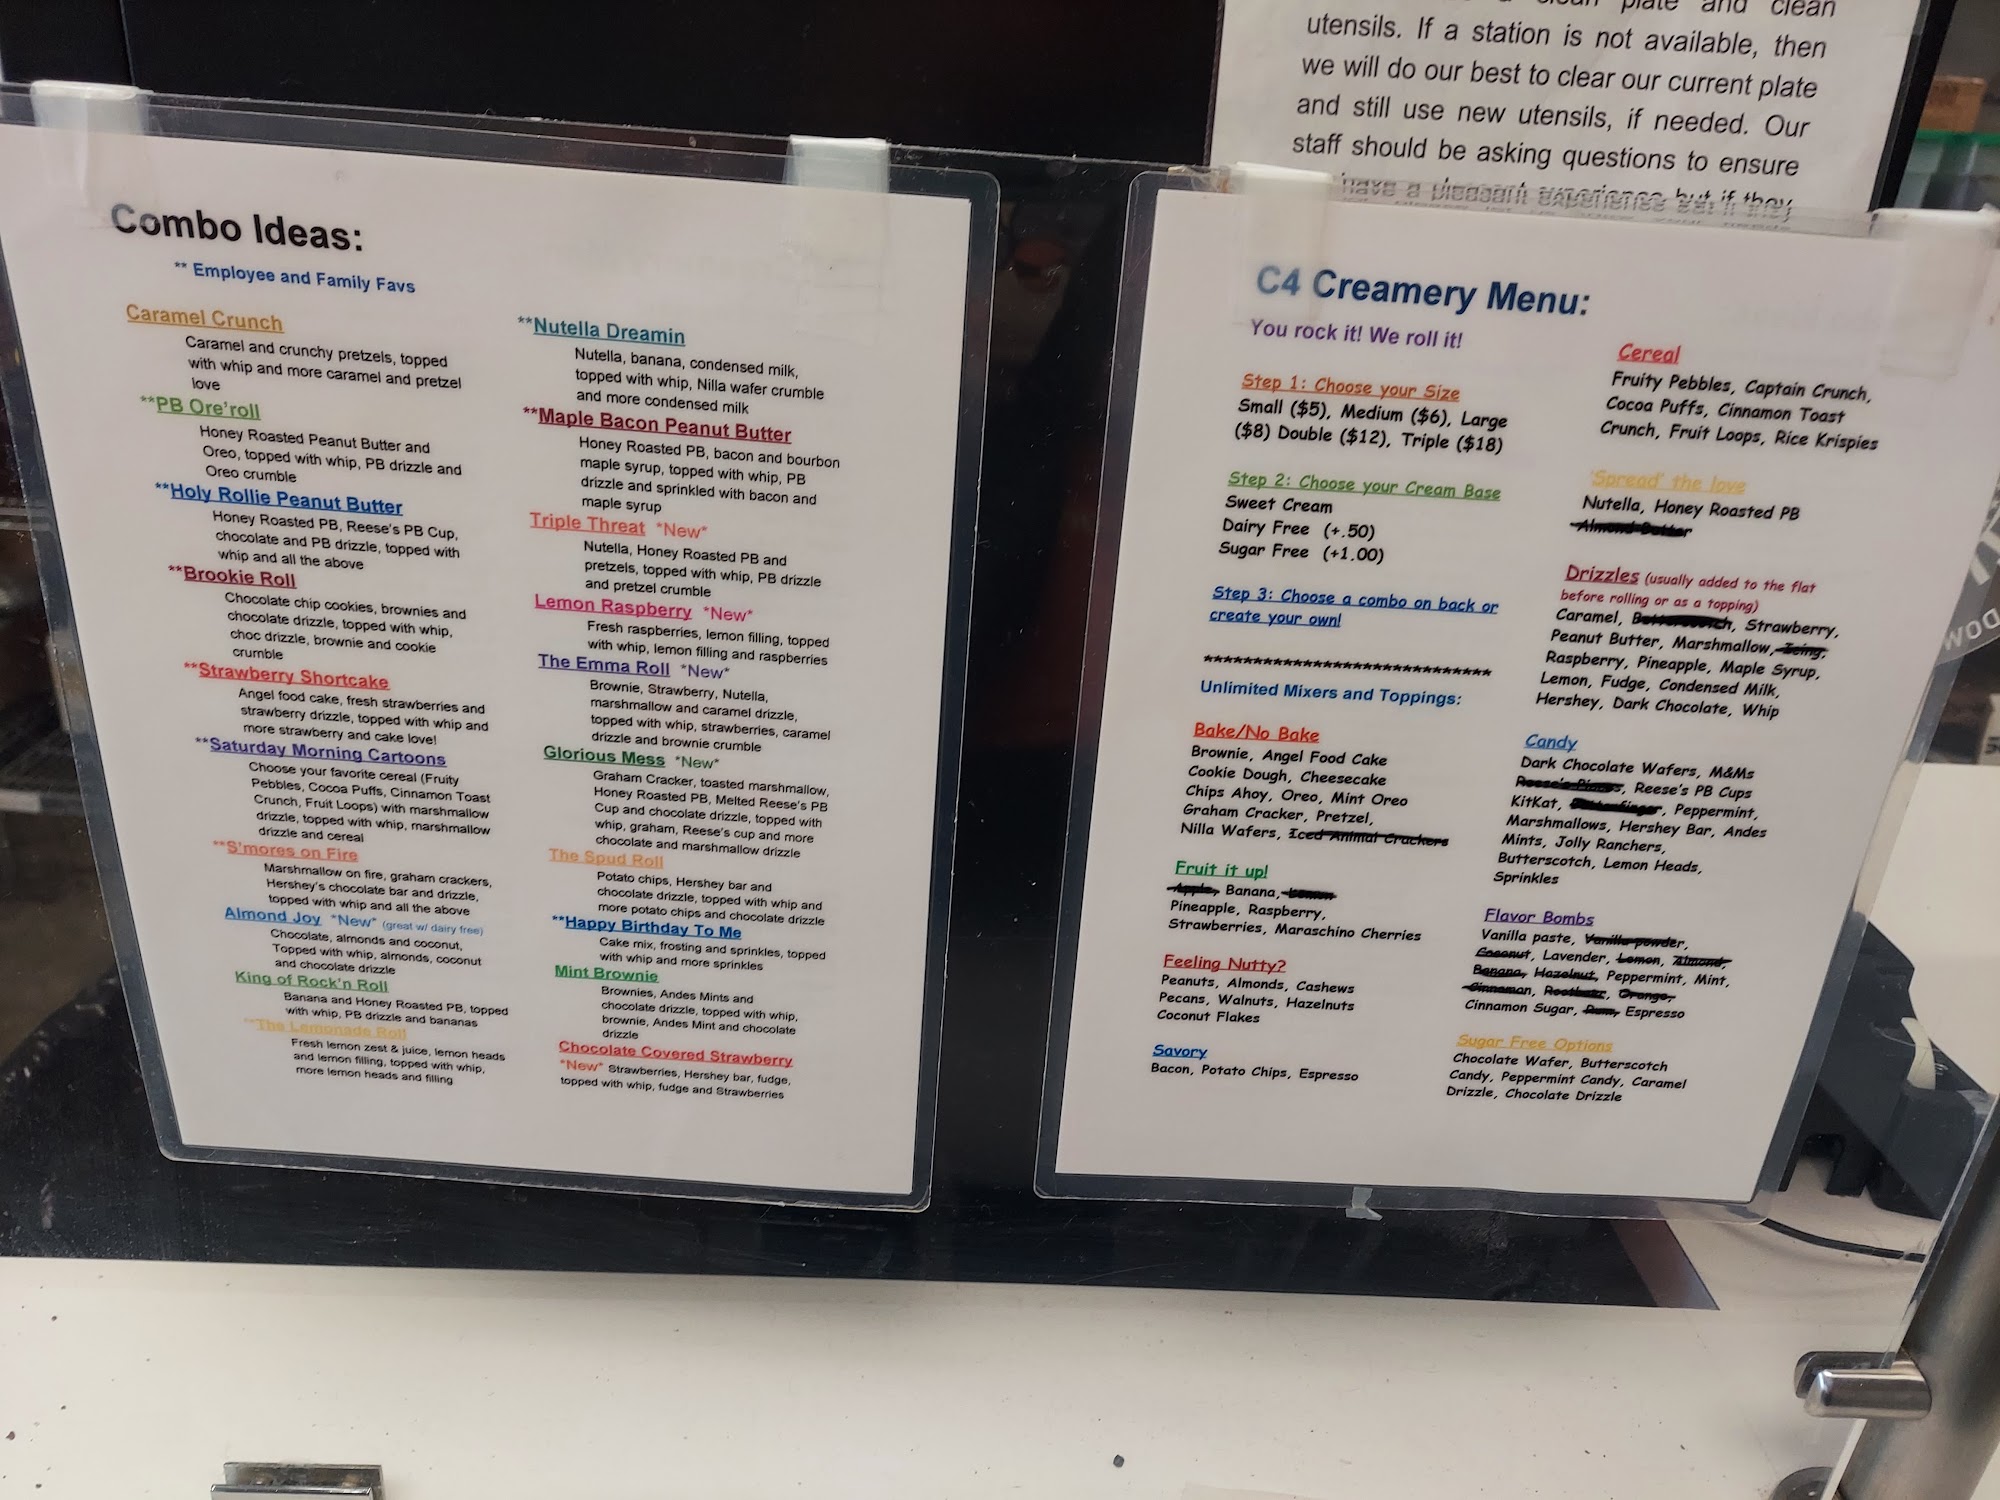 plate and clean
utensils. If a station is not available, then
we will do our best to clear our current plate
and still use new utensils, if needed. Our
staff should be asking questions to ensure
have a pleasant experience but if they
Combo Ideas:
** Employee and Family Favs
Caramel Crunch
Caramel and crunchy pretzels, topped
with whip and more caramel and pretzel
love
**PB Ore'roll
Honey Roasted Peanut Butter and
Oreo, topped with whip, PB drizzle and
Oreo crumble
**Holy Rollie Peanut Butter
Honey Roasted PB, Reese's PB Cup,
chocolate and PB drizzle, topped with
whip and all the above
**Brookie Roll
Chocolate chip cookies, brownies and
chocolate drizzle, topped with whip,
choc drizzle, brownie and cookie
crumble
**Strawberry Shortcake
Angel food cake, fresh strawberries and
strawberry drizzle, topped with whip and
more strawberry and cake love!
**Saturday Morning Cartoons
Choose your favorite cereal (Fruity
Pebbles, Cocoa Puffs, Cinnamon Toast
Crunch, Fruit Loops) with marshmallow
drizzle, topped with whip, marshmallow
drizzle and cereal
**S'mores on Fire
Marshmallow on fire, graham crackers,
Hershey's chocolate bar and drizzle,
topped with whip and all the above
Almond Joy *New* (great w/ dairy free)
Chocolate, almonds and coconut,
Topped with whip, almonds, coconut
and chocolate drizzle
King of Rock'n Roll
Banana and Honey Roasted PB, topped
with whip, PB drizzle and bananas
**The Lemonade Roll
Fresh lemon zest & juice, lemon heads
and lemon filling, topped with whip,
more lemon heads and filling
**Nutella Dreamin
Nutella, banana, condensed milk,
topped with whip, Nilla wafer crumble
and more condensed milk
**Maple Bacon Peanut Butter
Honey Roasted PB, bacon and bourbon
maple syrup, topped with whip, PB
drizzle and sprinkled with bacon and
maple syrup
Triple Threat *New*
Nutella, Honey Roasted PB and
pretzels, topped with whip, PB drizzle
and pretzel crumble
Lemon Raspberry *New*
Fresh raspberries, lemon filling, topped
with whip, lemon filling and raspberries
The Emma Roll *New*
Brownie, Strawberry, Nutella,
marshmallow and caramel drizzle,
topped with whip, strawberries, caramel
drizzle and brownie crumble
Glorious Mess *New*
Graham Cracker, toasted marshmallow,
Honey Roasted PB, Melted Reese's PB
Cup and chocolate drizzle, topped with
whip, graham, Reese's cup and more
chocolate and marshmallow drizzle
The Spud Roll
Potato chips, Hershey bar and
chocolate drizzle, topped with whip and
more potato chips and chocolate drizzle
**Happy Birthday To Me
Cake mix, frosting and sprinkles, topped
with whip and more sprinkles
Mint Brownie
Brownies, Andes Mints and
chocolate drizzle, topped with whip,
brownie, Andes Mint and chocolate
drizzle
Chocolate Covered Strawberry
*New* Strawberries, Hershey bar, fudge,
topped with whip, fudge and Strawberries
C4 Creamery Menu:
You rock it! We roll it!
Step 1: Choose your Size
Small ($5), Medium ($6), Large
($8) Double ($12), Triple ($18)
Step 2: Choose your Cream Base
Sweet Cream
Dairy Free (+.50)
Sugar Free (+1.00)
Step 3: Choose a combo on back or
create your own!
****************************
Unlimited Mixers and Toppings:
Bake/No Bake
Brownie, Angel Food Cake
Cookie Dough, Cheesecake
Chips Ahoy, Oreo, Mint Oreo
Graham Cracker, Pretzel,
Nilla Wafers, Iced Animal Crackers
Fruit it up!
Apple, Banana, Lemon
Pineapple, Raspberry,
Strawberries, Maraschino Cherries
Feeling Nutty?
Peanuts, Almonds, Cashews
Pecans, Walnuts, Hazelnuts
Coconut Flakes
Savory
Bacon, Potato Chips, Espresso
Cereal
Fruity Pebbles, Captain Crunch,
Cocoa Puffs, Cinnamon Toast
Crunch, Fruit Loops, Rice Krispies
'Spread' the love
Nutella, Honey Roasted PB
Almond Butter
Drizzles (usually added to the flat
before rolling or as a topping)
Caramel, Butterscotch, Strawberry,
Peanut Butter, Marshmallow, Icing,
Raspberry, Pineapple, Maple Syrup,
Lemon, Fudge, Condensed Milk,
Hershey, Dark Chocolate, Whip
Candy
Dark Chocolate Wafers, M&Ms
Reese's Pieces, Reese's PB Cups
KitKat, Butterfinger, Peppermint,
Marshmallows, Hershey Bar, Andes
Mints, Jolly Ranchers,
Butterscotch, Lemon Heads,
Sprinkles
Flavor Bombs
Vanilla paste, Vanilla powder,
Coconut, Lavender, Lemon, Almond,
Banana, Hazelnut, Peppermint, Mint,
Cinnamon, Rootbeer, Orange,
Cinnamon Sugar, Rum, Espresso
Sugar Free Options
Chocolate Wafer, Butterscotch
Candy, Peppermint Candy, Caramel
Drizzle, Chocolate Drizzle